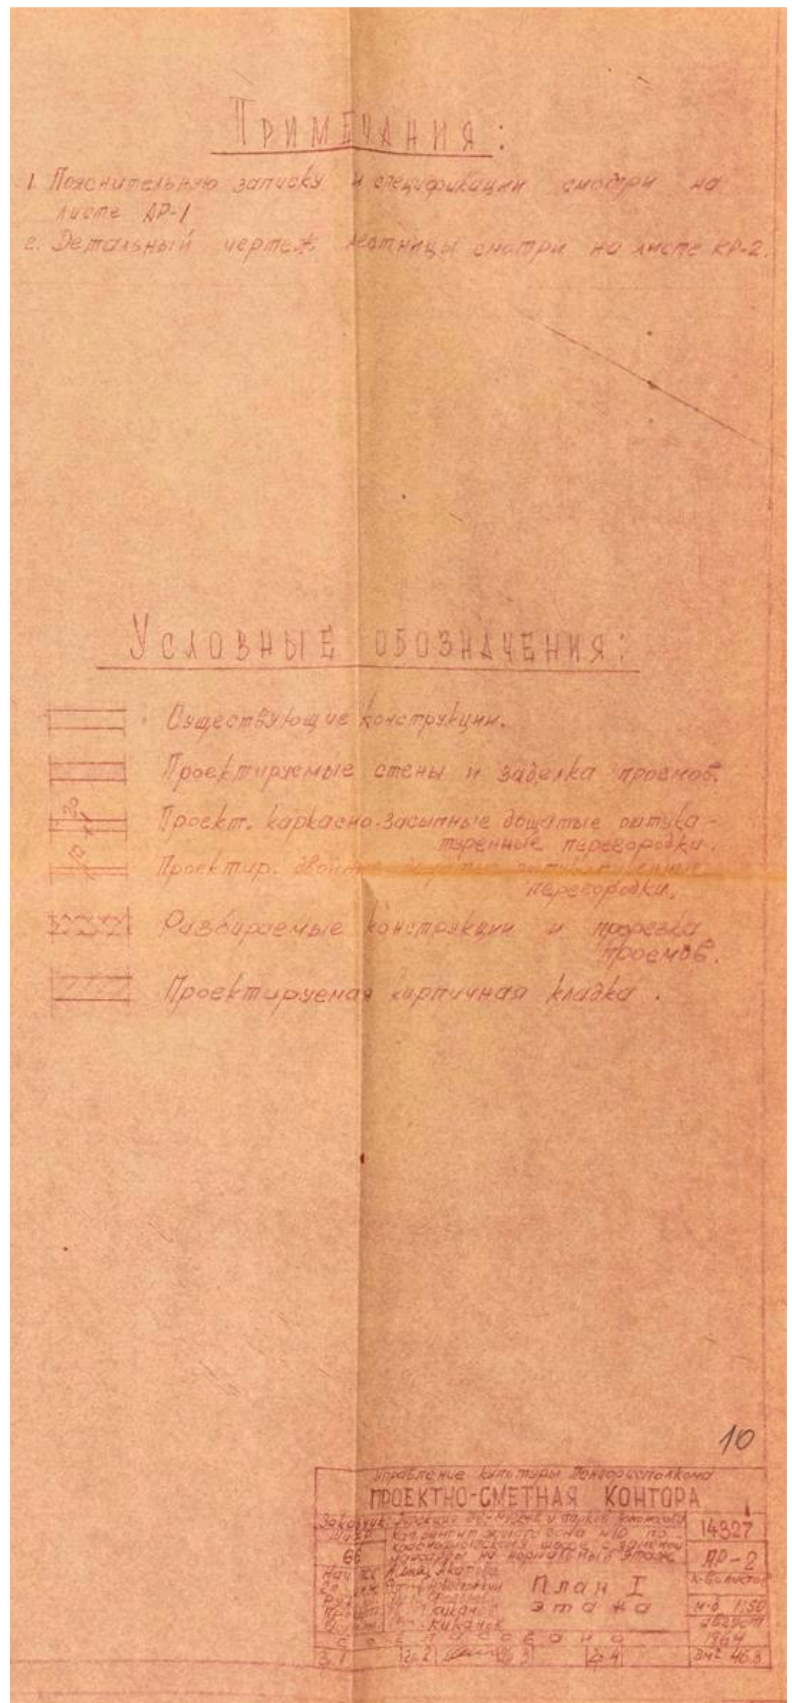 ПРИМЕЧАНИЯ:
1. Пояснительную записку и спецификации смотри на
листе АР-1
2. Детальный чертеж лестницы смотри на листе КР-2.
УСЛОВНЫЕ ОБОЗНАЧЕНИЯ:
Существующие конструкции.
Проектируемые стены и заделка проемов.
20
Проект. каркасно-засыпные дощатые оштука-
туренные перегородки.
10
Проектир. двойные
перегородки.
Разбираемые конструкции и прорезка
проемов.
Проектируемая кирпичная кладка.
10
Управление культуры Ленгорисполкома
ПРОЕКТНО-СМЕТНАЯ КОНТОРА
Заказчик и парков
14327
Капремонт жилого дома №10 по
шоссе с заменой
мансарды на нормальный этаж
66
АР-2
План I
этажа
м-б 1:50
август
1964